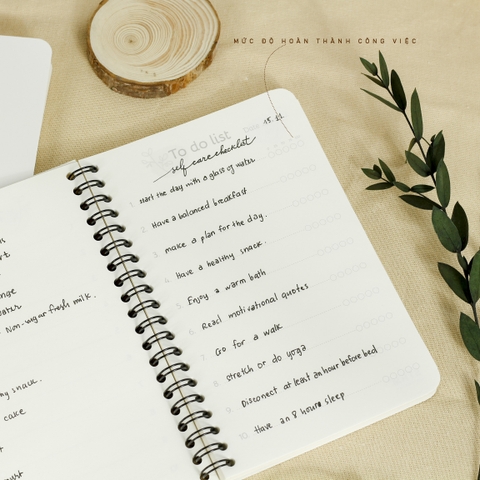 MỨC ĐỘ HOÀN THÀNH CÔNG VIỆC
To do list
15.11
self care checklist
1. start the day with a glass of water
2. Have a balanced breakfast
3. make a plan for the day.
4. Have a healthy snack.
5. Enjoy a warm bath
6. Read motivational quotes
7. Go for a walk
8. stretch or do yoga
9. Disconect at least an hour before bed
10. Have an 8 hours sleep
water
Non-sugar fresh milk.
snack.
cake